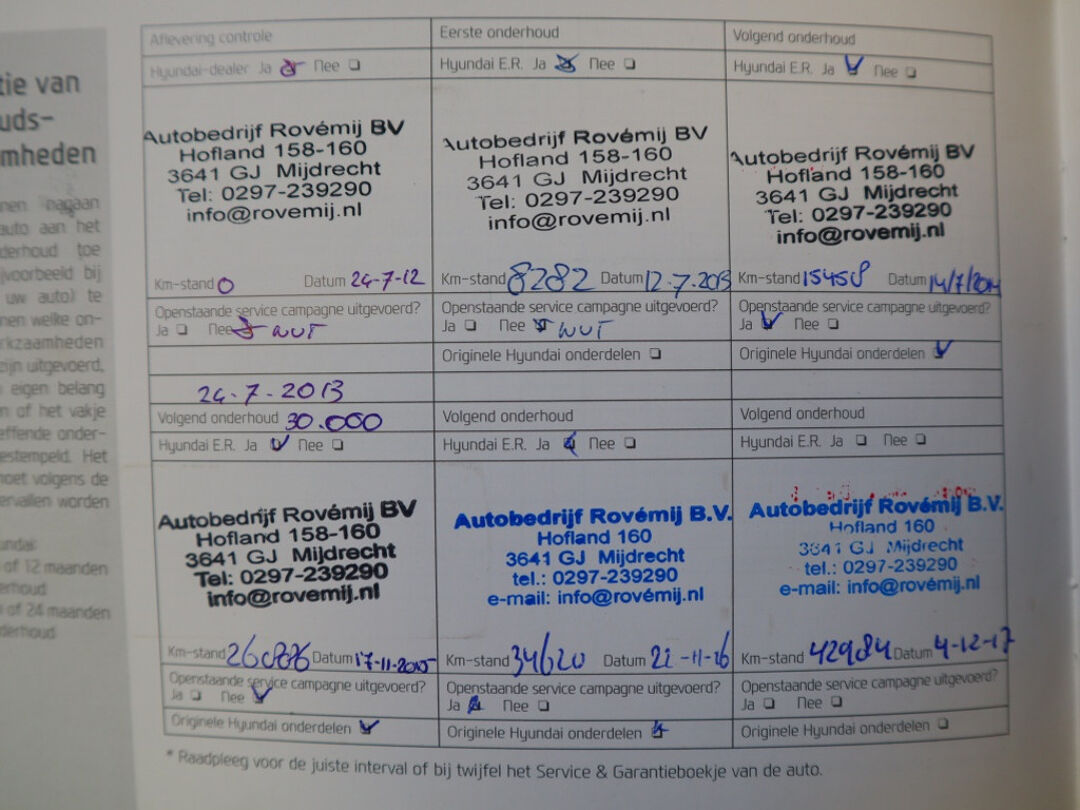 tie van
uds-
mheden
nen nagaan
auto aan het
derhoud toe
jvoorbeeld bij
uw auto) te
nen welke on-
rkzaamheden
zijn uitgevoerd,
eigen belang
n of het vakje
effende onder-
estempeld. Het
moet volgens de
ervallen worden
undai:
of 12 maanden
erhoud
of 24 maanden
derhoud
Aflevering controle
Hyundai-dealer Ja Nee
Autobedrijf Rovémij BV
Hofland 158-160
3641 GJ Mijdrecht
Tel: 0297-239290
info@rovemij.nl
Km-stand 0 Datum 24-7-12
Openstaande service campagne uitgevoerd?
Ja Nee NVT
24-7-2013
30.000
Eerste onderhoud
Hyundai E.R. Ja Nee
Autobedrijf Rovémij BV
Hofland 158-160
3641 GJ Mijdrecht
Tel: 0297-239290
info@rovemij.nl
Km-stand 8282 Datum 12.7.2013
Openstaande service campagne uitgevoerd?
Ja Nee NVT
Originele Hyundai onderdelen
Volgend onderhoud
Hyundai E.R. Ja Nee
Autobedrijf Rovémij BV
Hofland 158-160
3641 GJ Mijdrecht
Tel: 0297-239290
info@rovemij.nl
Km-stand 15458 Datum 14/7/2014
Openstaande service campagne uitgevoerd?
Ja Nee
Originele Hyundai onderdelen
Volgend onderhoud
Hyundai E.R. Ja Nee
Autobedrijf Rovémij BV
Hofland 158-160
3641 GJ Mijdrecht
Tel: 0297-239290
info@rovemij.nl
Km-stand Datum 17-11-2015
Openstaande service campagne uitgevoerd?
Ja Nee
Originele Hyundai onderdelen
Volgend onderhoud
Hyundai E.R. Ja Nee
Autobedrijf Rovémij B.V.
Hofland 160
3641 GJ Mijdrecht
tel.: 0297-239290
e-mail: info@rovémij.nl
Km-stand 34620 Datum 22-11-16
Openstaande service campagne uitgevoerd?
Ja Nee
Originele Hyundai onderdelen
Volgend onderhoud
Hyundai E.R. Ja Nee
Autobedrijf Rovémij B.V.
Hofland 160
3641 GJ Mijdrecht
tel.: 0297-239290
e-mail: info@rovémij.nl
Km-stand 42984 Datum 4-12-17
Openstaande service campagne uitgevoerd?
Ja Nee
Originele Hyundai onderdelen
* Raadpleeg voor de juiste interval of bij twijfel het Service & Garantieboekje van de auto.